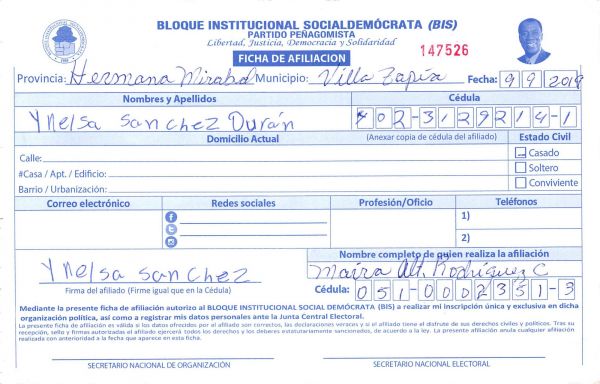 BLOQUE INSTITUCIONAL SOCIALDEMÓCRATA (BIS)
PARTIDO PEÑAGOMISTA
Libertad, Justicia, Democracia y Solidaridad
FICHA DE AFILIACION
147526
Provincia: Hermana Mirabal Municipio: Villa Tapia Fecha: 9 9 2019
Nombres y Apellidos Cédula
Ynelsa Sanchez Durán 402-3129214-1
Domicilio Actual (Anexar copia de cédula del afiliado) Estado Civil
Calle: Casado
#Casa / Apt. / Edificio: Soltero
Barrio / Urbanización: Conviviente
Correo electrónico Redes sociales Profesión/Oficio Teléfonos
1)
2)
Nombre completo de quien realiza la afiliación
Ynelsa Sanchez Maira Alt. Rodriguez C
Firma del afiliado (Firme igual que en la Cédula) Cédula: 051-0002351-3
Mediante la presente ficha de afiliación autorizo al BLOQUE INSTITUCIONAL SOCIAL DEMÓCRATA (BIS) a realizar mi inscripción única y exclusiva en dicha
organización política, así como a registrar mis datos personales ante la Junta Central Electoral.
La presente ficha de afiliación es válida si los datos ofrecidos por el afiliado son correctos, las declaraciones veraces y si el afiliado tiene el disfrute de sus derechos civiles y políticos. Tras su
recepción, sello y firmas autorizadas el afiliado ejercerá todos los derechos y los deberes estatutariamente sancionados, de acuerdo a la ley. La presente afiliación anula cualquier afiliación
realizada con anterioridad a la fecha que aparece en esta ficha.
SECRETARIO NACIONAL DE ORGANIZACIÓN SECRETARIO NACIONAL ELECTORAL